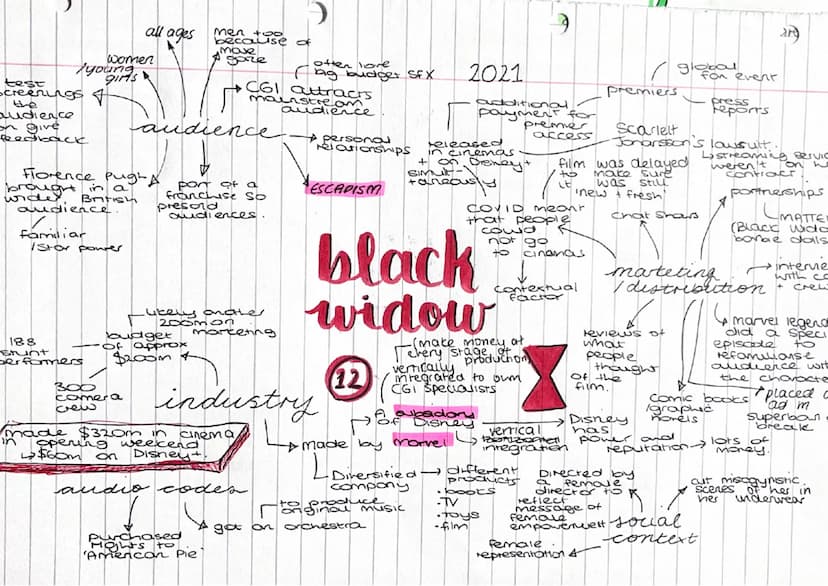 all ages
women
/young
girls
men too
because of
more
gore
test
screenings
the
audience
can give
feedback
audience
CGI attracts
mainstream
audience.
often lone
big budget SFX
personal
relationships
ESCAPISM
part of a
franchise so
presold
audiences.
Florence Pugh
brought in a
wider British
audience.
familiar
/star power
2021
additional
payment for
premier
access
released
in cinemas
+ on Disney+
simult-
taneously
premiers
global
fan event
press
reports
Scarlett
Johansson's lawsuit.
↳ streaming servic
weren't on
contract.
film was delayed
to make sure
it was still
'new + fresh'
COVID meant
that people
could
not go
to cinemas
contextual
factor
chat shows
partnerships
MATTE
(Black Wido
barbie dolls
marketing
/distribution
interview
with ca
+ crew
marvel legend
did a speci
episode to
refamiliarise
audience with
the characte
placed a
ad in
superbowl
break
comic books
/graphic
novels
reviews of
what
people
thought
of the
film.
black
widow
12
likely another
200m on
marketing
budget
of approx
$200m
188
stunt
performers
300
camera
crew
industry
made $320m in cinema
in opening weekend
↳ $60m on Disney+.
(make money at
every stage of
production)
vertically
integrated to own
CGI specialists
made by
A
of Disney
marvel
vertical
integration
Disney
has
power and
reputation
lots of
money.
Diversified
company
different
products
·books
·TV
·toys
·film
audio codes
purchased
rights to
'American Pie'
got an orchestra
to produce
original music
social
context
Directed by
a female
director to
reflect
message of
female
empowerment
female
representation
cut misogynistic
scenes of her in
her underwear